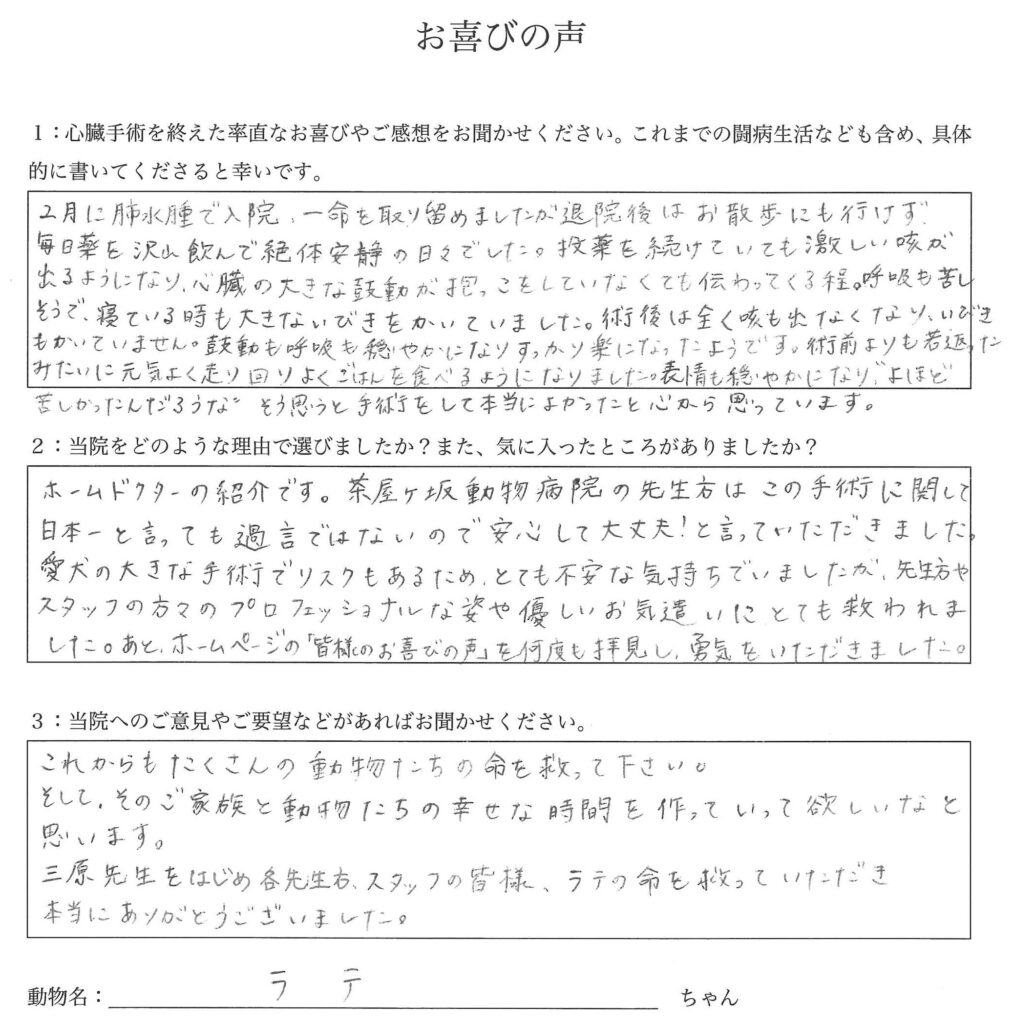 お喜びの声
1：心臓手術を終えた率直なお喜びやご感想をお聞かせください。これまでの闘病生活なども含め、具体
的に書いてくださると幸いです。
2月に肺水腫で入院、一命を取り留めましたが退院後はお散歩にも行けず
毎日薬を沢山飲んで絶体安静の日々でした。投薬を続けていても激しい咳が
出るようになり、心臓の大きな鼓動が抱っこをしていなくても伝わってくる程。呼吸も苦し
そうで、寝ている時も大きないびきをかいていました。術後は全く咳も出なくなり、いびき
もかいていません。鼓動も呼吸も穏やかになりすっかり楽になったようです。術前よりも若返った
みたいに元気よく走り回りよくごはんを食べるようになりました。表情も穏やかになり、"よほど
苦しかったんだろうな" そう思うと手術をして本当によかったと心から思っています。
2：当院をどのような理由で選びましたか？また、気に入ったところがありましたか？
ホームドクターの紹介です。茶屋ヶ坂動物病院の先生方はこの手術に関して
日本一と言っても過言ではないので安心して大丈夫！と言っていただきました。
愛犬の大きな手術でリスクもあるため、とても不安な気持ちでいましたが、先生方や
スタッフの方々のプロフェッショナルな姿や優しいお気遣いにとても救われま
した。あと、ホームページの「皆様のお喜びの声」を何度も拝見し、勇気をいただきました。
3：当院へのご意見やご要望などがあればお聞かせください。
これからもたくさんの動物たちの命を救って下さい。
そして、そのご家族と動物たちの幸せな時間を作っていって欲しいなと
思います。
三原先生をはじめ各先生方、スタッフの皆様、ラテの命を救っていただき
本当にありがとうございました。
動物名：ラテ ちゃん